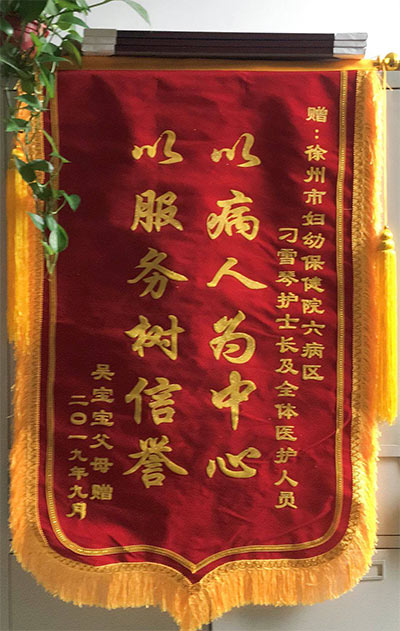 赠：徐州市妇幼保健院六病区
刁雪琴护士长及全体医护人员
以病人为中心
以服务树信誉
吴宝宝父母赠
二〇一九年九月